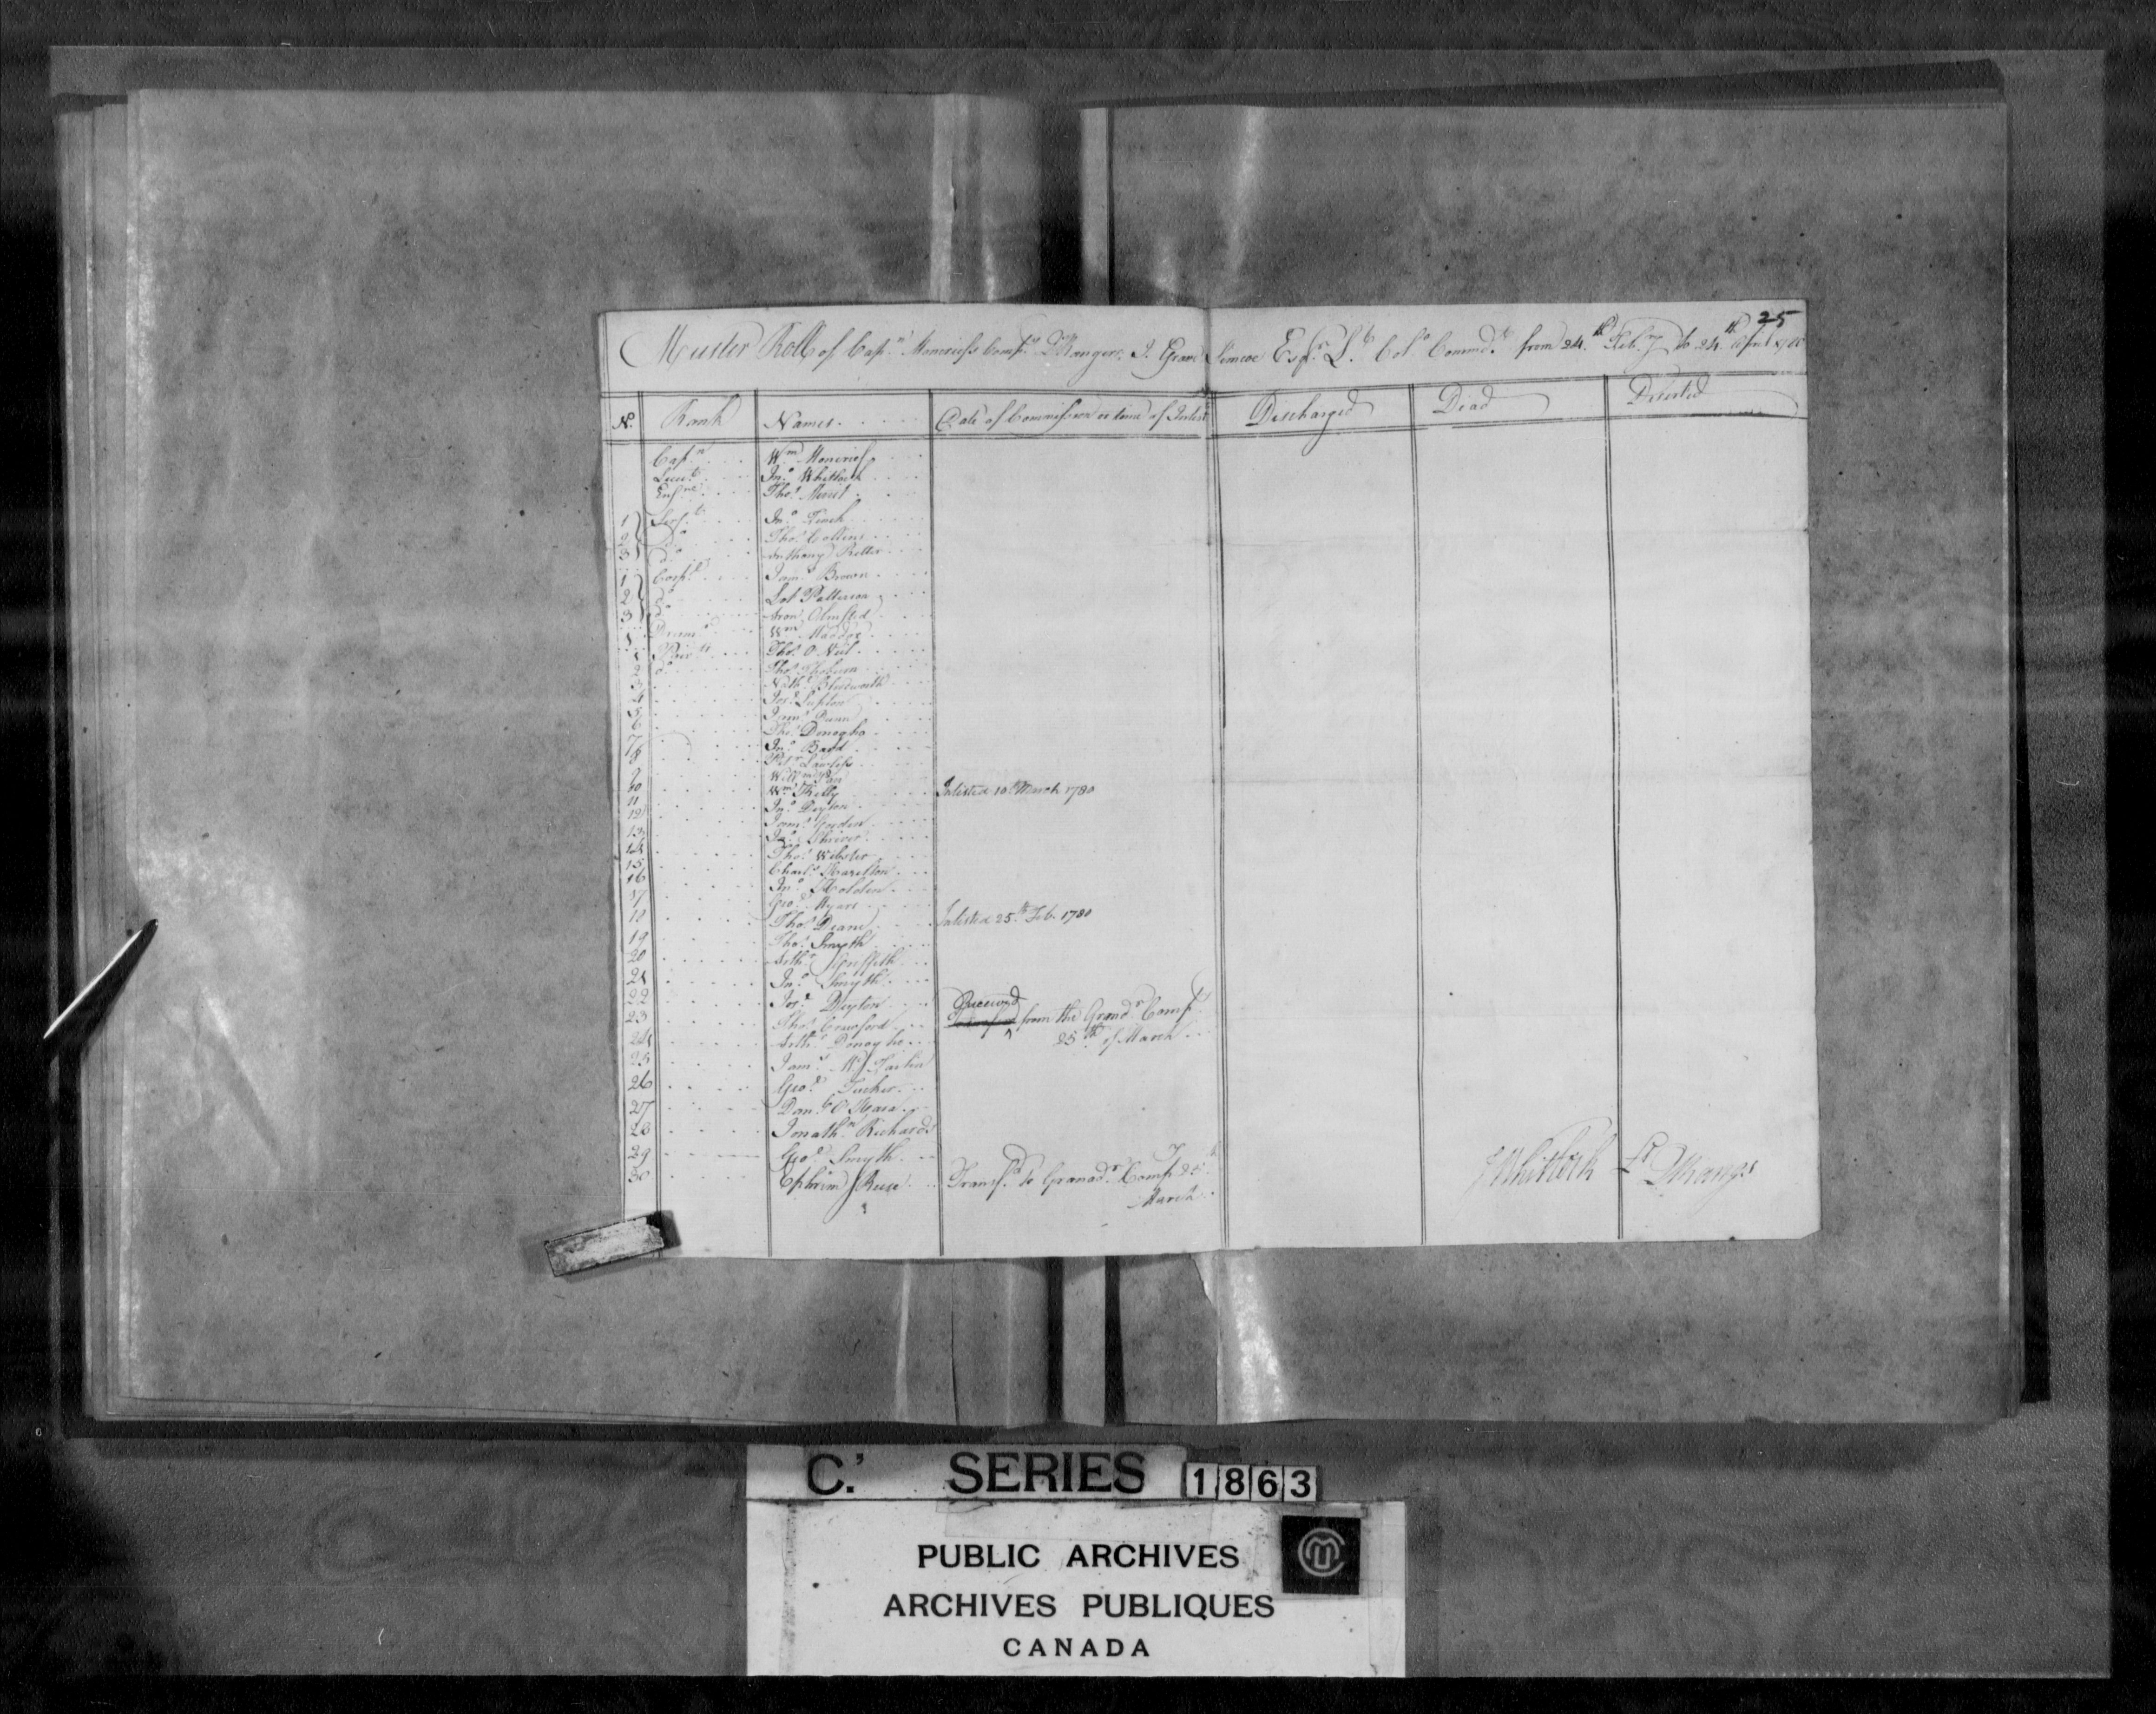 25
Muster Roll of Capt.n Moncrief's Comp.y Q Rangers J. Grave Simcoe Esq.r Lt Col.o Commd.t from 24.th Feb.ry to 24.th April 1780
No. Rank Names Date of Commission or time of Inlist Discharged Dead Deserted
Capt.n Wm Moncrief
Lieut. Jn.o Whitlock
Ens.ne Tho.s Merrit
1 Serj.t Jn.o Finch
2 Do Tho.s Collins
3 Do Anthony
1 Corp.l Jam.s Brown
2 Do Lot Patterson
3 Do Aron Olmsted
1 Drum.r Wm Maddox
1 Priv.te Tho.s O Neil
2 Do Tho.s
3 Nath.l Bludworth
4 Jos.h Lupton
5 Jam.s Dunn
6 Tho.s Donagho
7 Jn.o Band
8 Pet.r Lawless
9 Will.m
10 Wm Kelly Inlisted 10.th March 1780
11 Jn.o Deyton
12 Jam.s Gorden
13 Jn.o Shriver
14 Tho.s Webster
15 Charl.s Hazelton
16 Jn.o Holden
17 Geo.e Myars
18 Tho.s Deane Inlisted 25.th Feb. 1780
19 Tho.s Smyth
20 Arth.r Griffith
21 Jn.o Smyth
22 Jos.h Deyton
23 Tho.s Crawford Received from the Grand.r Comp.y
24 Arth.r Donogho 25th of March
25 Jam.s Mc Farlin
26 Geo.e Tucker
27 Dan.l O Hara
28 Jonath.n Richards
29 Geo.e Smyth
30 Ephrim Reese Transf.d to Granad.r Comp.y 25th
March
J Whitlock Lt Q Rang.s
C. SERIES 1863
PUBLIC ARCHIVES
ARCHIVES PUBLIQUES
CANADA